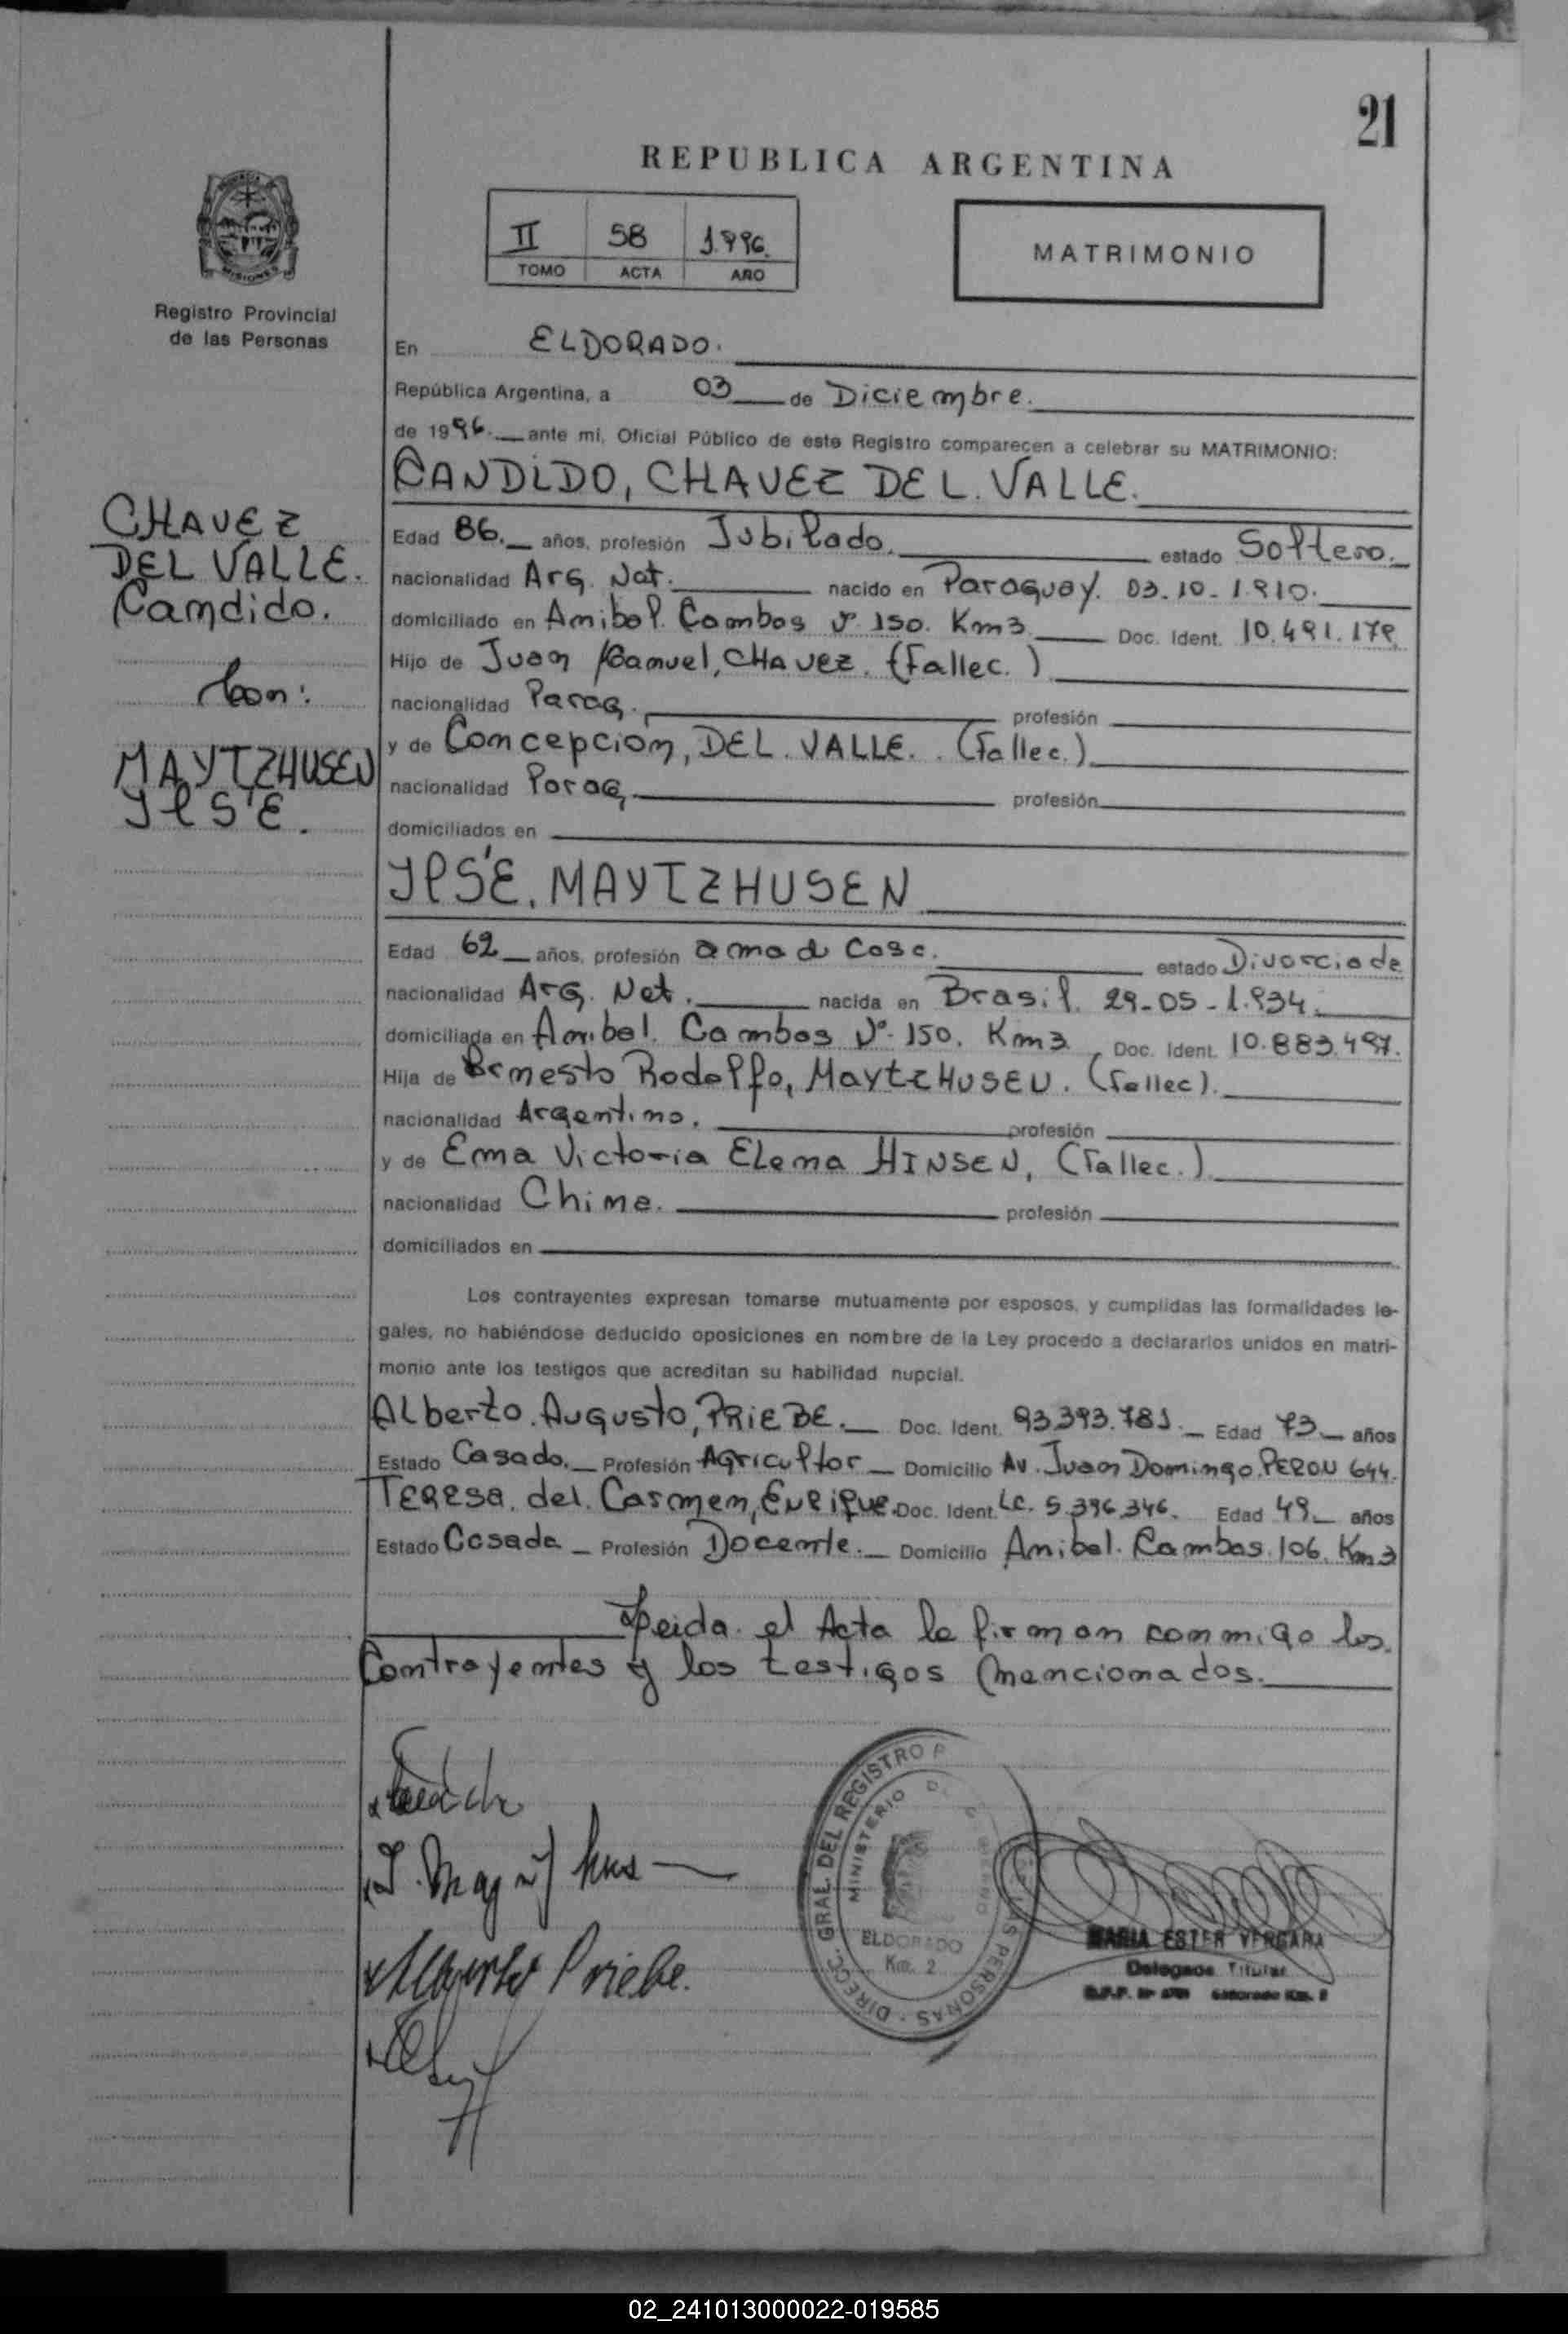 21
REPUBLICA ARGENTINA
II 58 1.996.
TOMO ACTA AÑO
MATRIMONIO
Registro Provincial
de las Personas
En ELDORADO.
República Argentina, a 03 de Diciembre.
de 1996. ante mí, Oficial Público de este Registro comparecen a celebrar su MATRIMONIO:
CANDIDO, CHAVEZ DEL. VALLE.
CHAVEZ
DEL VALLE.
Candido.
Con:
MAYTZHUSEN
YLSÉ.
Edad 86. años, profesión Jubilado. estado Soltero.
nacionalidad Arg. Nat. nacido en Paraguay. 03.10-1.910.
domiciliado en Anibal. Cambas Nº 150. Km3 Doc. Ident. 10.491.179
Hijo de Juan Manuel, CHAVEZ. (Fallec.)
nacionalidad Parag. profesión
y de Concepción, DEL. VALLE. (Fallec.)
nacionalidad Parag. profesión
domiciliados en
YLSÉ, MAYTZHUSEN
Edad 62 años, profesión ama d Casa. estado Divorciada
nacionalidad Arg. Nat. nacida en Brasil. 29-05-1.934.
domiciliada en Anibal. Cambas Nº 150. Km3, Doc. Ident. 10.883.497.
Hija de Ernesto Rodolfo, MaytzHUSEN. (Fallec).
nacionalidad Argentino. profesión
y de Erna Victoria Elena HINSEN, (Fallec.)
nacionalidad China. profesión
domiciliados en
Los contrayentes expresan tomarse mutuamente por esposos, y cumplidas las formalidades le-
gales, no habiéndose deducido oposiciones en nombre de la Ley procedo a declararlos unidos en matri-
monio ante los testigos que acreditan su habilidad nupcial.
Alberto. Augusto, PRIEBE. Doc. Ident. 93.393.781. Edad 73 años
Estado Casado. Profesión Agricultor Domicilio Av. Juan Domingo. PERON 644.
TERESA. del. Carmen, ENRIQUE. Doc. Ident. LC. 5.396.346. Edad 49 años
Estado Casada Profesión Docente. Domicilio Anibal. Cambas. 106. Km3
Leida. el Acta la firman conmigo los.
Contrayentes y los testigos mencionados.
Alberto Priebe.
DIRECC. GRAL. DEL REGISTRO P PERSONAS
MINISTERIO DE GOBIERNO
ELDORADO
Km. 2
MARIA ESTER VERGARA
Delegada Titular
02_241013000022-019585